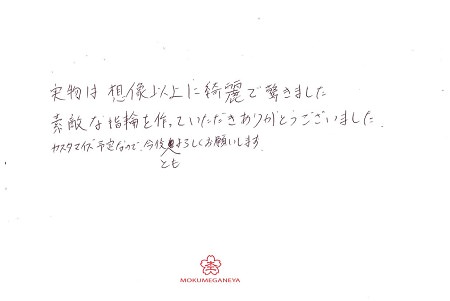 実物は想像以上に綺麗で驚きました
素敵な指輪を作っていただきありがとうございました.
カスタマイズ予定なので、今後ともよろしくお願いします.
MOKUMEGANEYA